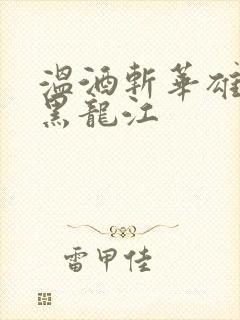 温酒斬華雄
黑龍江
雷甲佳